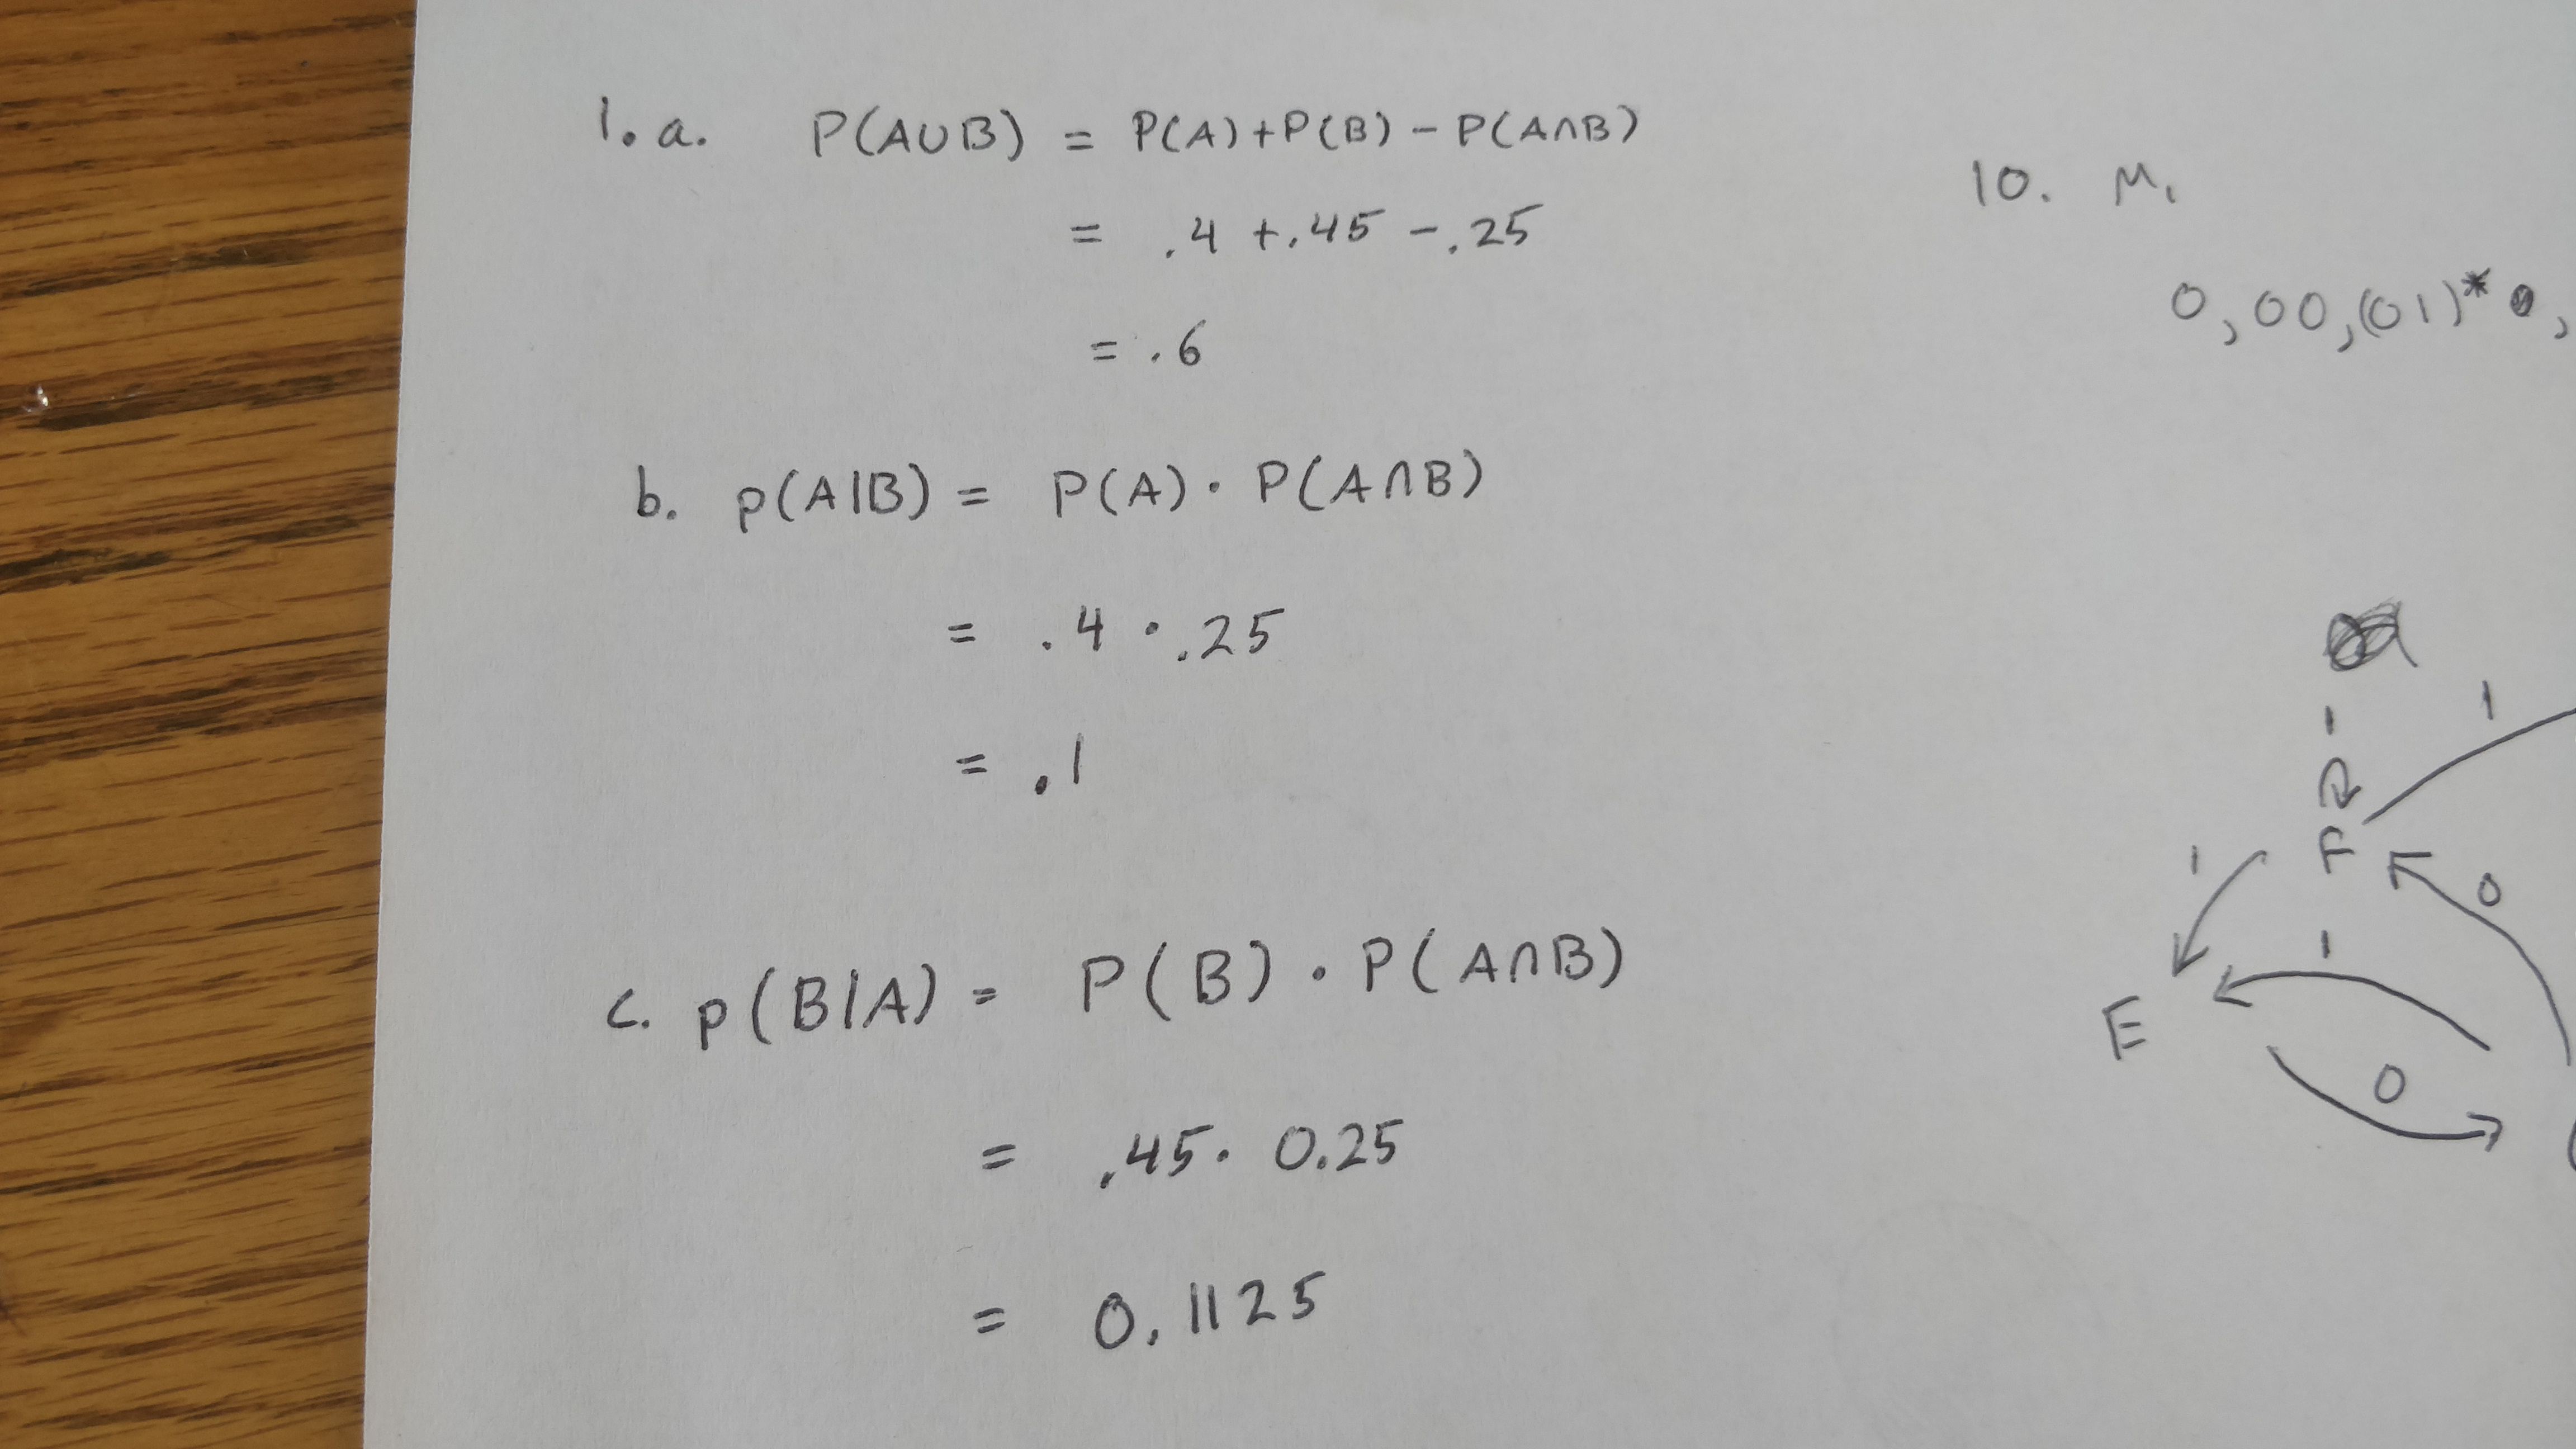 1. a. P(A∪B) = P(A)+P(B) - P(A∩B)
= .4 +.45 -.25
= .6
b. p(A|B) = P(A) · P(A∩B)
= .4 · .25
= .1
c. p(B|A) = P(B) · P(A∩B)
= .45 · 0.25
= 0.1125
10. M₁
0,00,(01)*
1
1
F
1
0
1
E
0